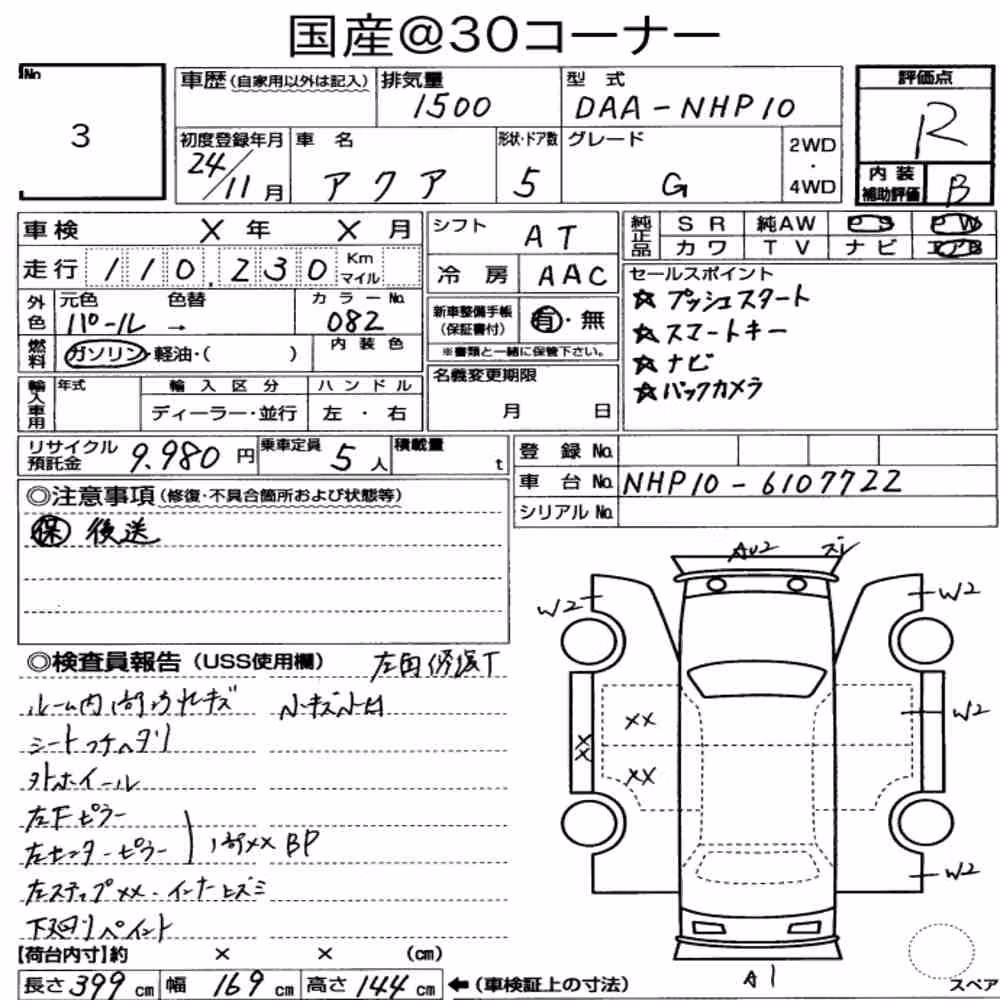 国産@30コーナー
No. 3
車歴(自家用以外は記入) 排気量 1500 型式 DAA-NHP10
評価点 R
内装補助評価 B
初度登録年月 24/11月 車名 アクア 形状・ドア数 5 グレード G 2WD・4WD
車検 X年 X月 シフト AT
純正品 SR 純AW PS PW
カワ TV ナビ エアB
走行 110,230 Km マイル
冷房 AAC
外色 元色 パール → 色替 カラーNo. 082
新車整備手帳(保証書付) 有・無
※書類と一緒に保管下さい。
セールスポイント
☆プッシュスタート
☆スマートキー
☆ナビ
☆バックカメラ
燃料 ガソリン・軽油・( ) 内装色
輸入車用 年式 輸入区分 ディーラー・並行 ハンドル 左・右
名義変更期限 月 日
リサイクル預託金 9.980円 乗車定員 5人 積載量 t
登録No.
車台No. NHP10-6107722
シリアルNo.
◎注意事項(修復・不具合箇所および状態等)
保 後送
◎検査員報告(USS使用欄)
ルーム内
シート
外ホイール
左Fピラー
左センターピラー XX BP
左ステップXX・インナーヒズミ
下廻りペイント
AU2 ズレ
W2 W2
XX
XX W2
XX
W2
A1
スペア
【荷台内寸】約 × × (cm)
長さ399cm 幅169cm 高さ144cm ←(車検証上の寸法)